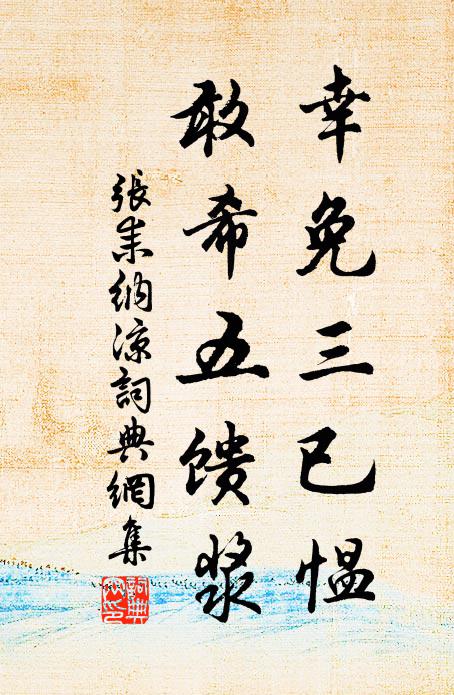 幸免三已愠
敢希五馈浆
張耒納凉詞典網集